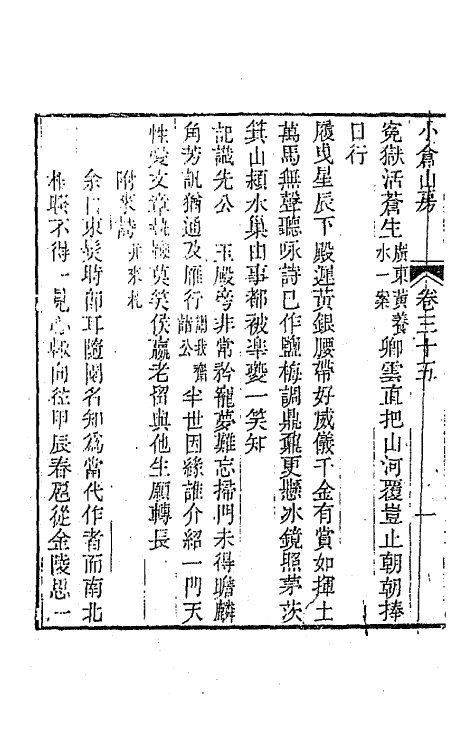 小倉山房 卷三十五 一
寃獄活蒼生 廣東黃養水一案 卿雲直把山河覆豈止朝朝捧
日行
履曳星辰下殿遲黃銀腰帶好威儀千金有賞如揮土
萬馬無聲聽咏詩已作鹽梅調鼎鼐更懸冰鏡照茅茨
箕山潁水巢由事都被臯夔一笑知
記識先公 玉殿旁非常矜寵夢難忘掃門未得瞻麟
角芳訊猶通及雁行 謂我齋諸公 半世因緣誰介紹一門天
性愛文章龍鍾莫笑侯嬴老留與他生願轉長
附來詩 并來札
余自束髮時卽耳隨園名知爲當代作者而南北
相睽不得一見心輒向往甲辰春扈從金陵思一